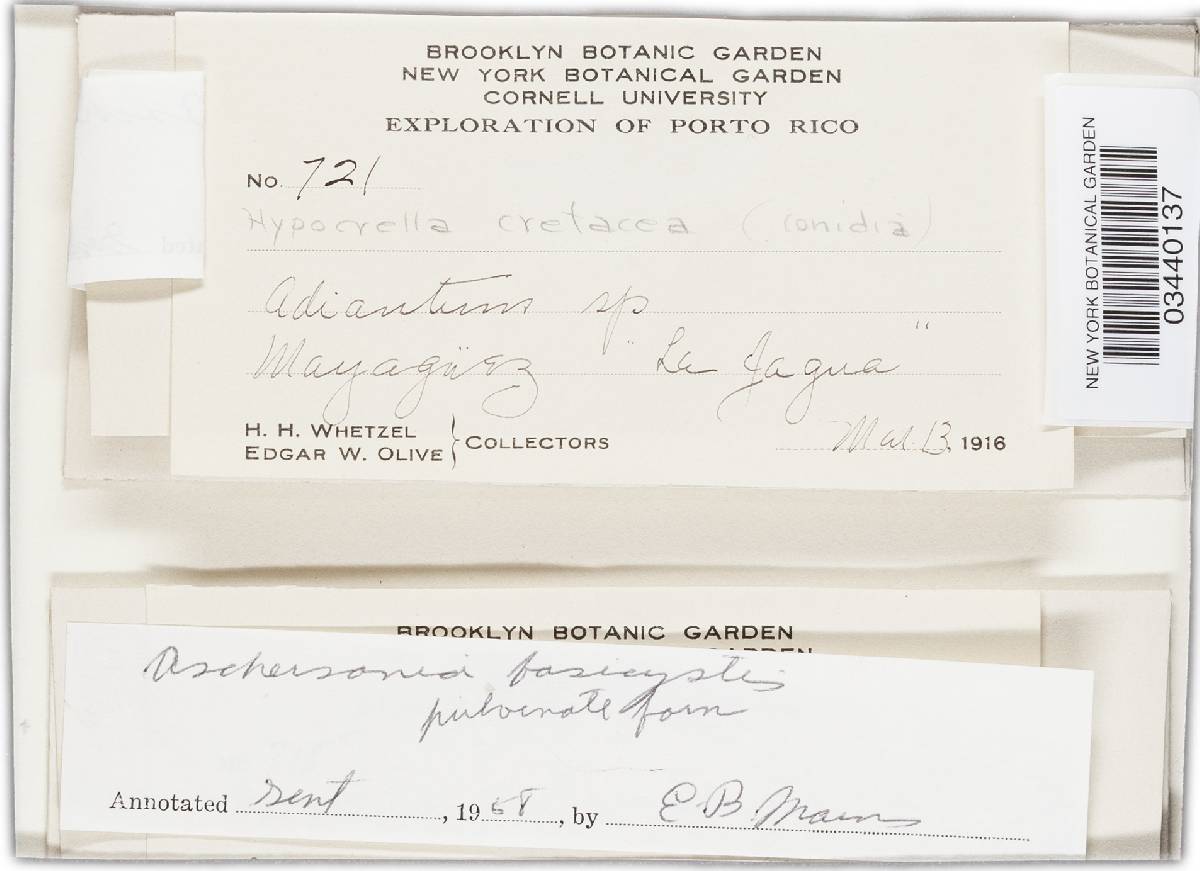 BROOKLYN BOTANIC GARDEN
NEW YORK BOTANICAL GARDEN
CORNELL UNIVERSITY
EXPLORATION OF PORTO RICO
No. 721
Hypocrella cretacea (conidia)
Adiantum sp
Mayagüez "La Jagua"
H. H. WHETZEL
EDGAR W. OLIVE } COLLECTORS
Mar. 13, 1916
NEW YORK BOTANICAL GARDEN
03440137
BROOKLYN BOTANIC GARDEN
GARDEN
Aschersonia basicystis
pulvinate form
Annotated Sent, 1958, by E B Mains